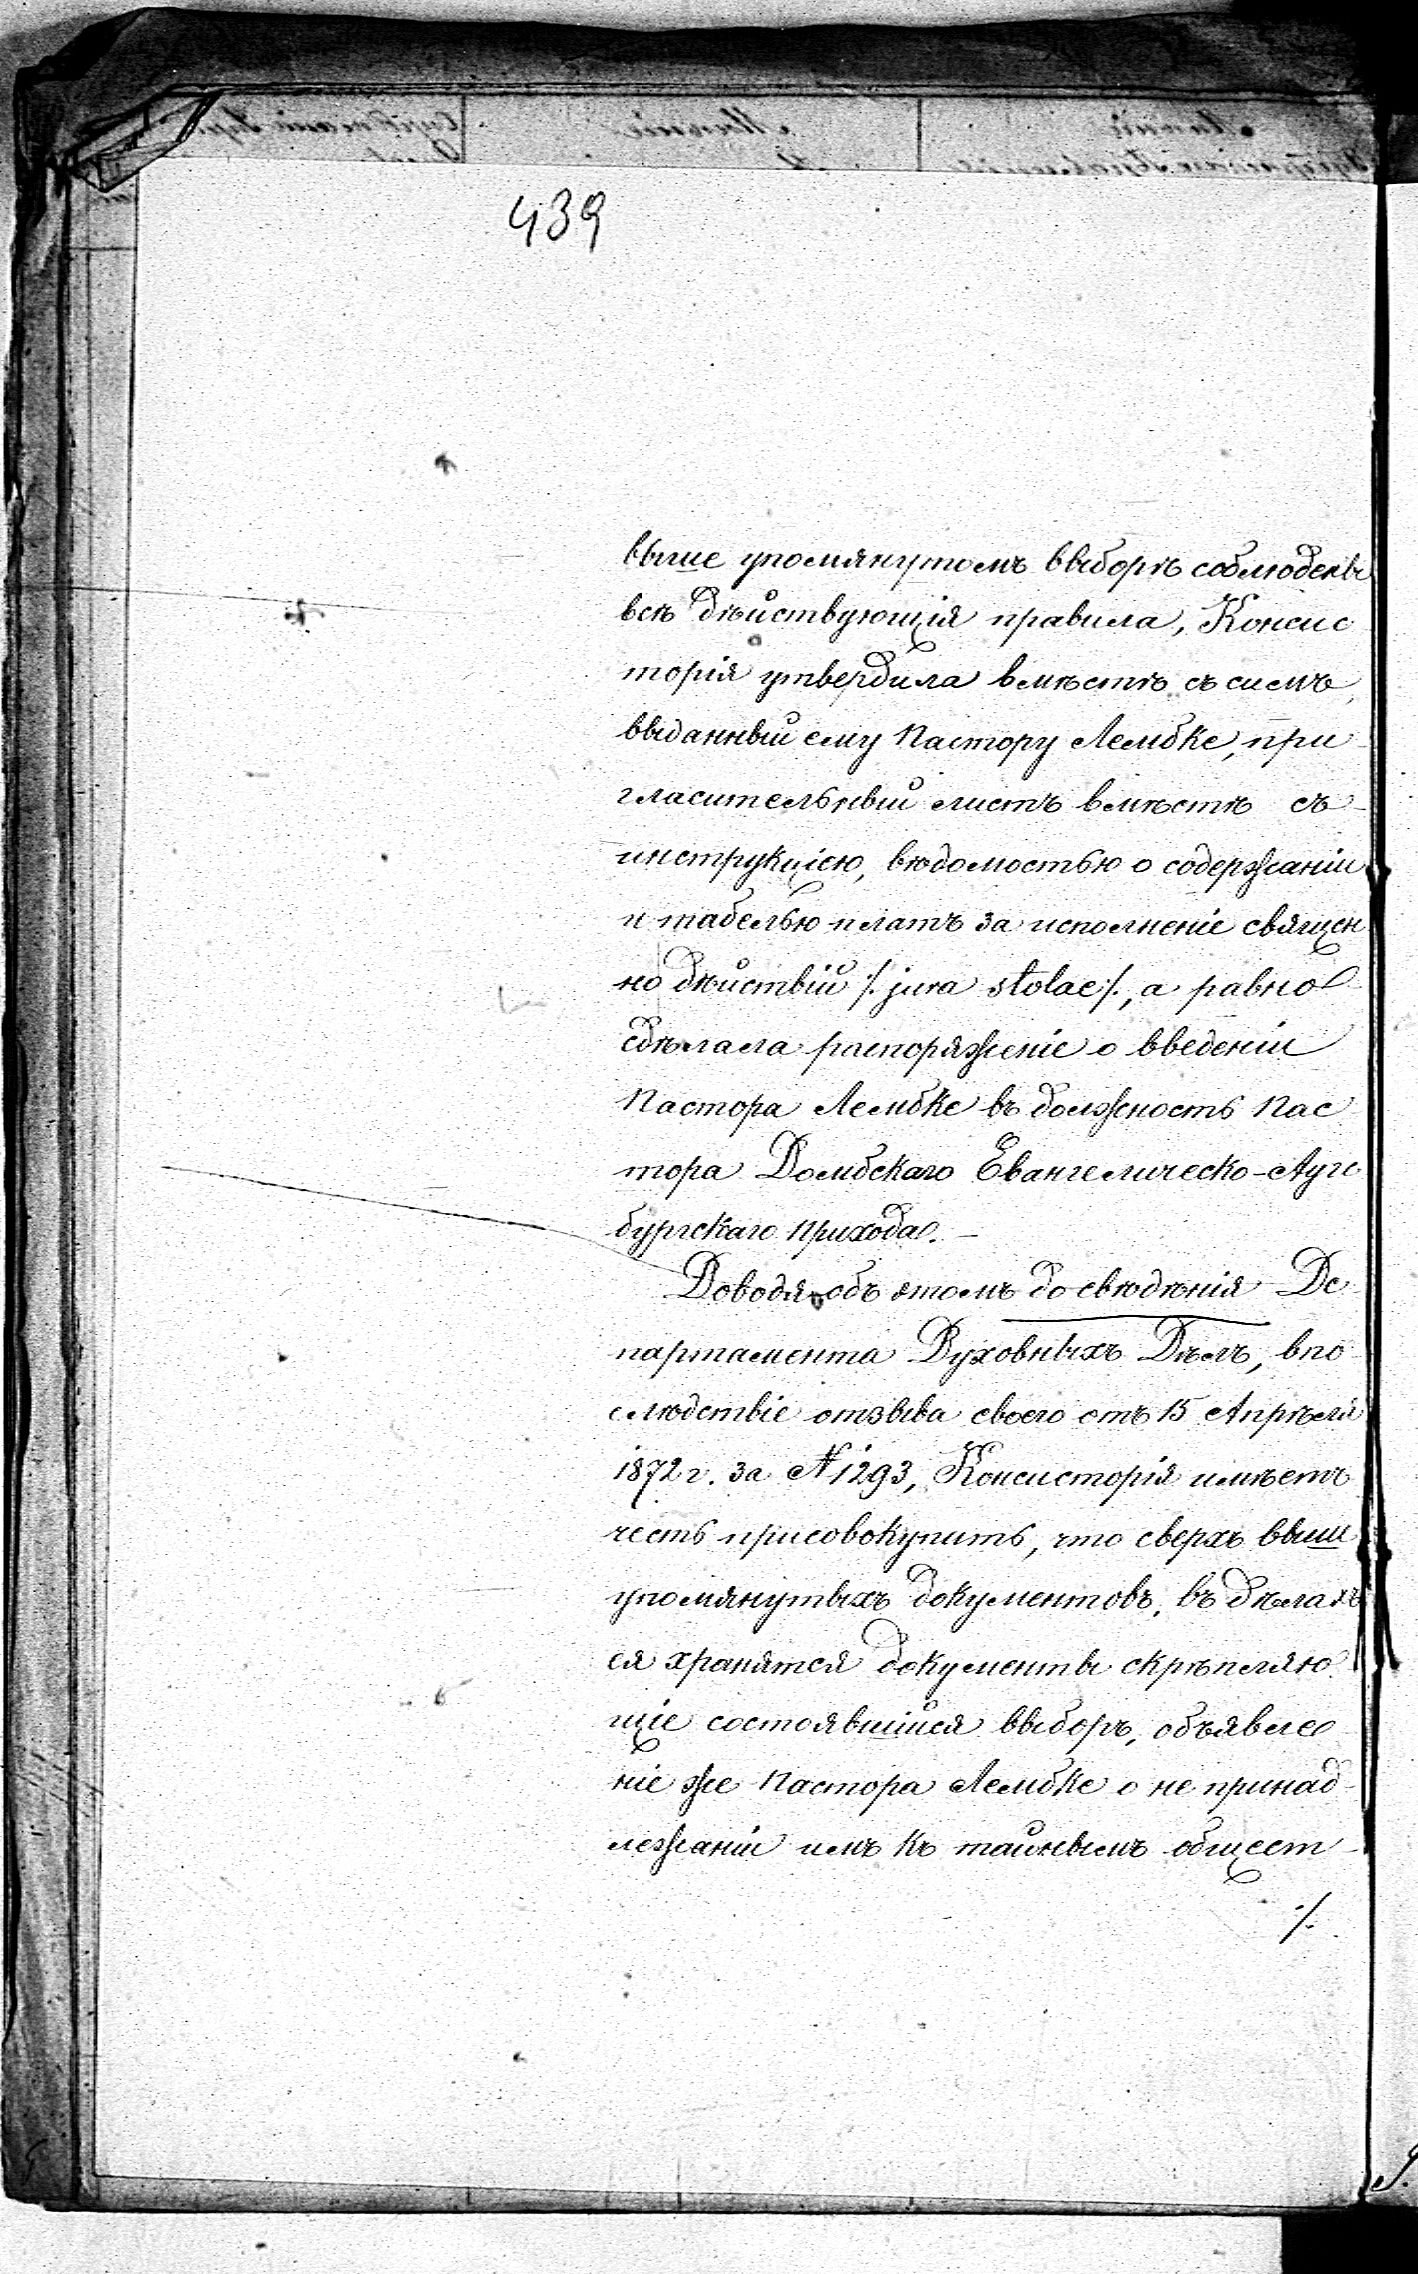 439
выше упомянутомъ выборѣ соблюдены
всѣ дѣйствующія правила, Консис
торія утвердила вмѣстѣ съ симъ,
выданный ему Пастору Лембке, при
гласительный листъ вмѣстѣ съ
инструкціею, вѣдомостью о содержаніи
и табелью платъ за исполненіе священ
но дѣйствій /. jura stolae /., а равно
сдѣлала распоряженіе о введеніи
Пастора Лембке въ должность Пас
тора Домбскаго Евангелическо-Аугс
бургскаго прихода. —
Доводя объ этомъ до свѣдѣнія Де
партамента Духовныхъ Дѣлъ, впо
слѣдствіе отзыва своего отъ 15 Апрѣля
1872 г. за № 1293, Консисторія имѣетъ
честь присовокупить, что сверхъ выше
упомянутыхъ документовъ, въ дѣлахъ
ея хранятся документы скрѣпляю
щіе состоявшійся выборъ, объявле
ніе же Пастора Лембке о не принад-
лежаніи имъ къ тайнымъ общест-
./.